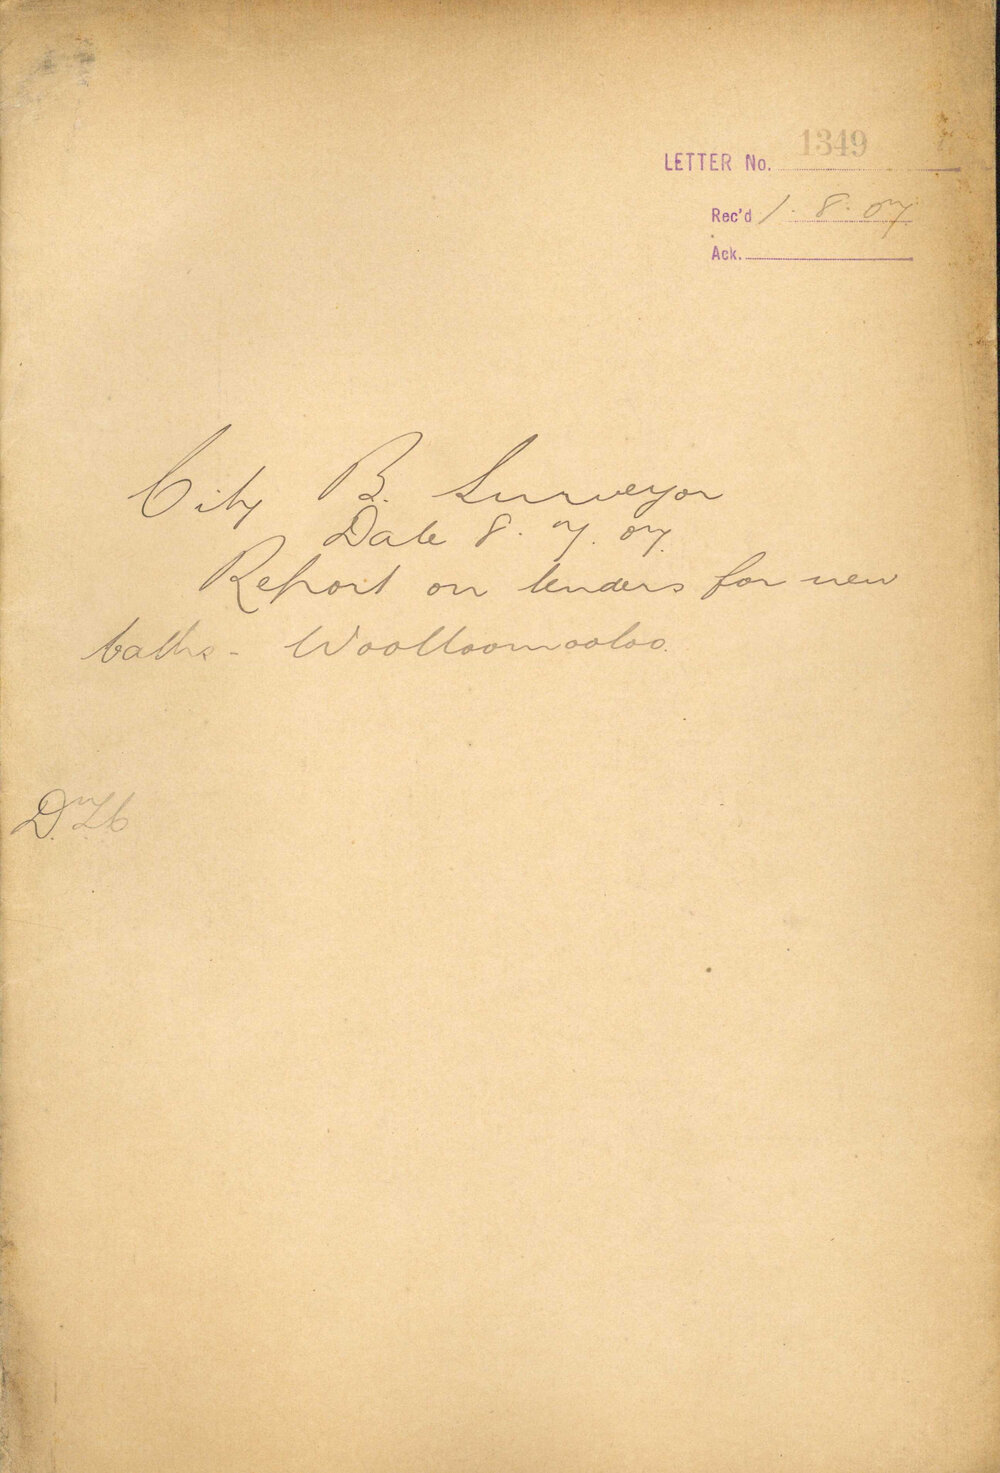 LETTER No. 1349
Rec'd 1. 8. 07
Ack.
City B. Surveyor
Date 8. 7. 07.
Report on tenders for new
baths - Woolloomooloo.